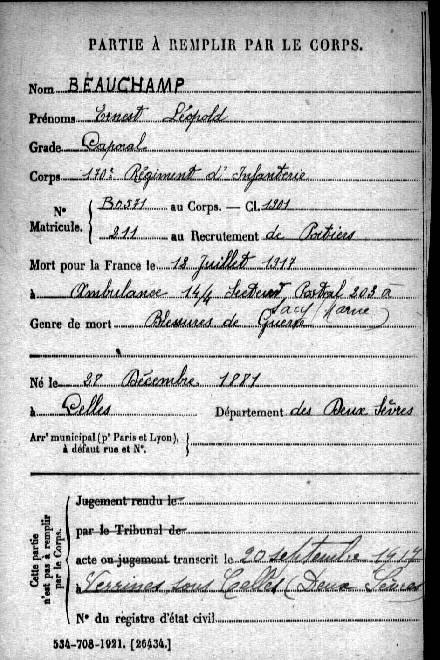 PARTIE À REMPLIR PAR LE CORPS.
Nom BEAUCHAMP
Prénoms Ernest Léopold
Grade Caporal
Corps 170e Régiment d'Infanterie
N° Matricule. { au Corps. — Cl. 1901
211 au Recrutement de Poitiers
Mort pour la France le 12 Juillet 1917
à Ambulance 14/4 Secteur Postal 203 à Sacy (Marne)
Genre de mort Blessures de Guerre
Né le 28 Décembre 1881
à Celles Département des Deux Sèvres
Arrt municipal (pr Paris et Lyon), à défaut rue et N°. }
Cette partie n'est pas à remplir par le Corps.
Jugement rendu le
par le Tribunal de
acte ou jugement transcrit le 20 septembre 1917
à Verrines sous Celles (Deux Sèvres
N° du registre d'état civil
534-708-1921. [26434.]